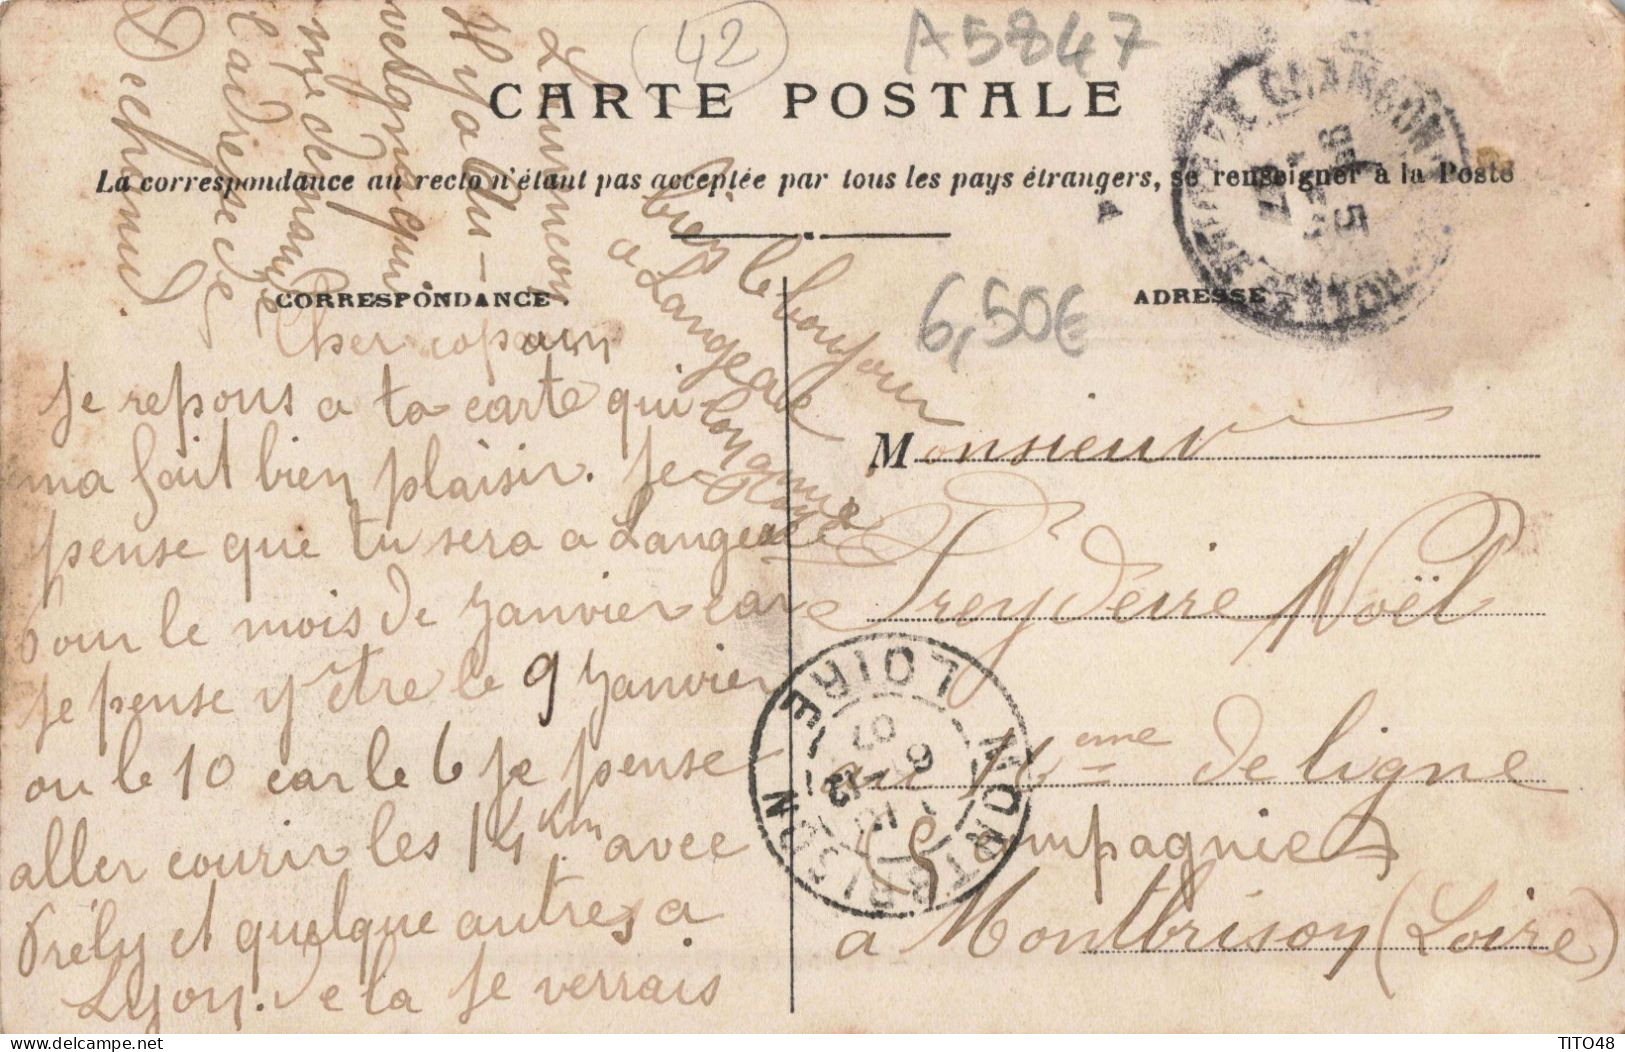 42
A5847
CARTE POSTALE
La correspondance au recto n'étant pas acceptée par tous les pays étrangers, se renseigner à la Poste
CORRESPONDANCE
ADRESSE
6,50€
Cher copain
Je repons a ta carte qui
ma fait bien plaisir. Je
pense que tu sera a Langeac
pour le mois de Janvier car
Je pense y être le 9 Janvier
ou le 10 car le 6 Je pense
aller courir les 14 km avec
Prély et quelque autres a
Lyon. De la Je verrais
bien le bonjour
a Langeac
Monsieur
Freydeire Noël
au 16eme de ligne
Compagnie
a Montbrison (Loire)
MONTBRISON
LOIRE
CHAMBON
m'e demande
l'adresse de
Dechaud
Il y a du
TITO48